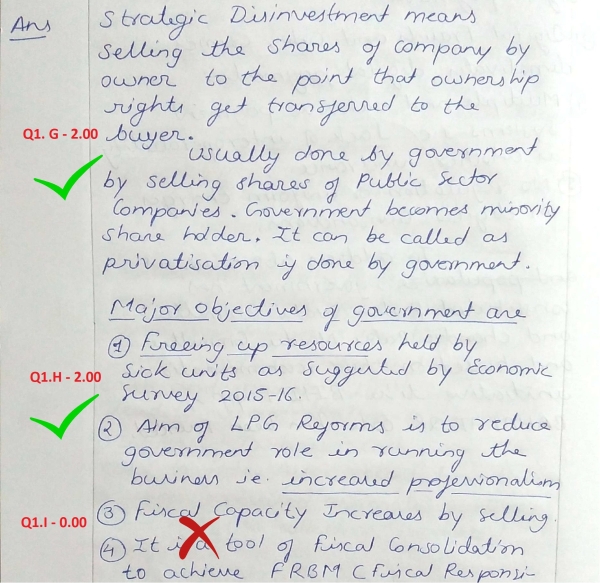 Ans
Strategic Disinvestment means
selling the shares of company by
owner to the point that ownership
rights get transferred to the
Q1. G - 2.00
buyer.
usually done by government
by selling shares of Public Sector
Companies. Government becomes minority
share holder. It can be called as
privatisation if done by government.
Major objectives of government are
① Freeing up resources held by
Q1.H - 2.00
sick units as suggested by Economic
survey 2015-16.
② Aim of LPG Reforms is to reduce
government role in running the
business ie. increased professionalism
Q1.I - 0.00
③ Fiscal Capacity Increases by selling.
④ It is a tool of fiscal Consolidation
to achieve FRBM (Fiscal Responsi